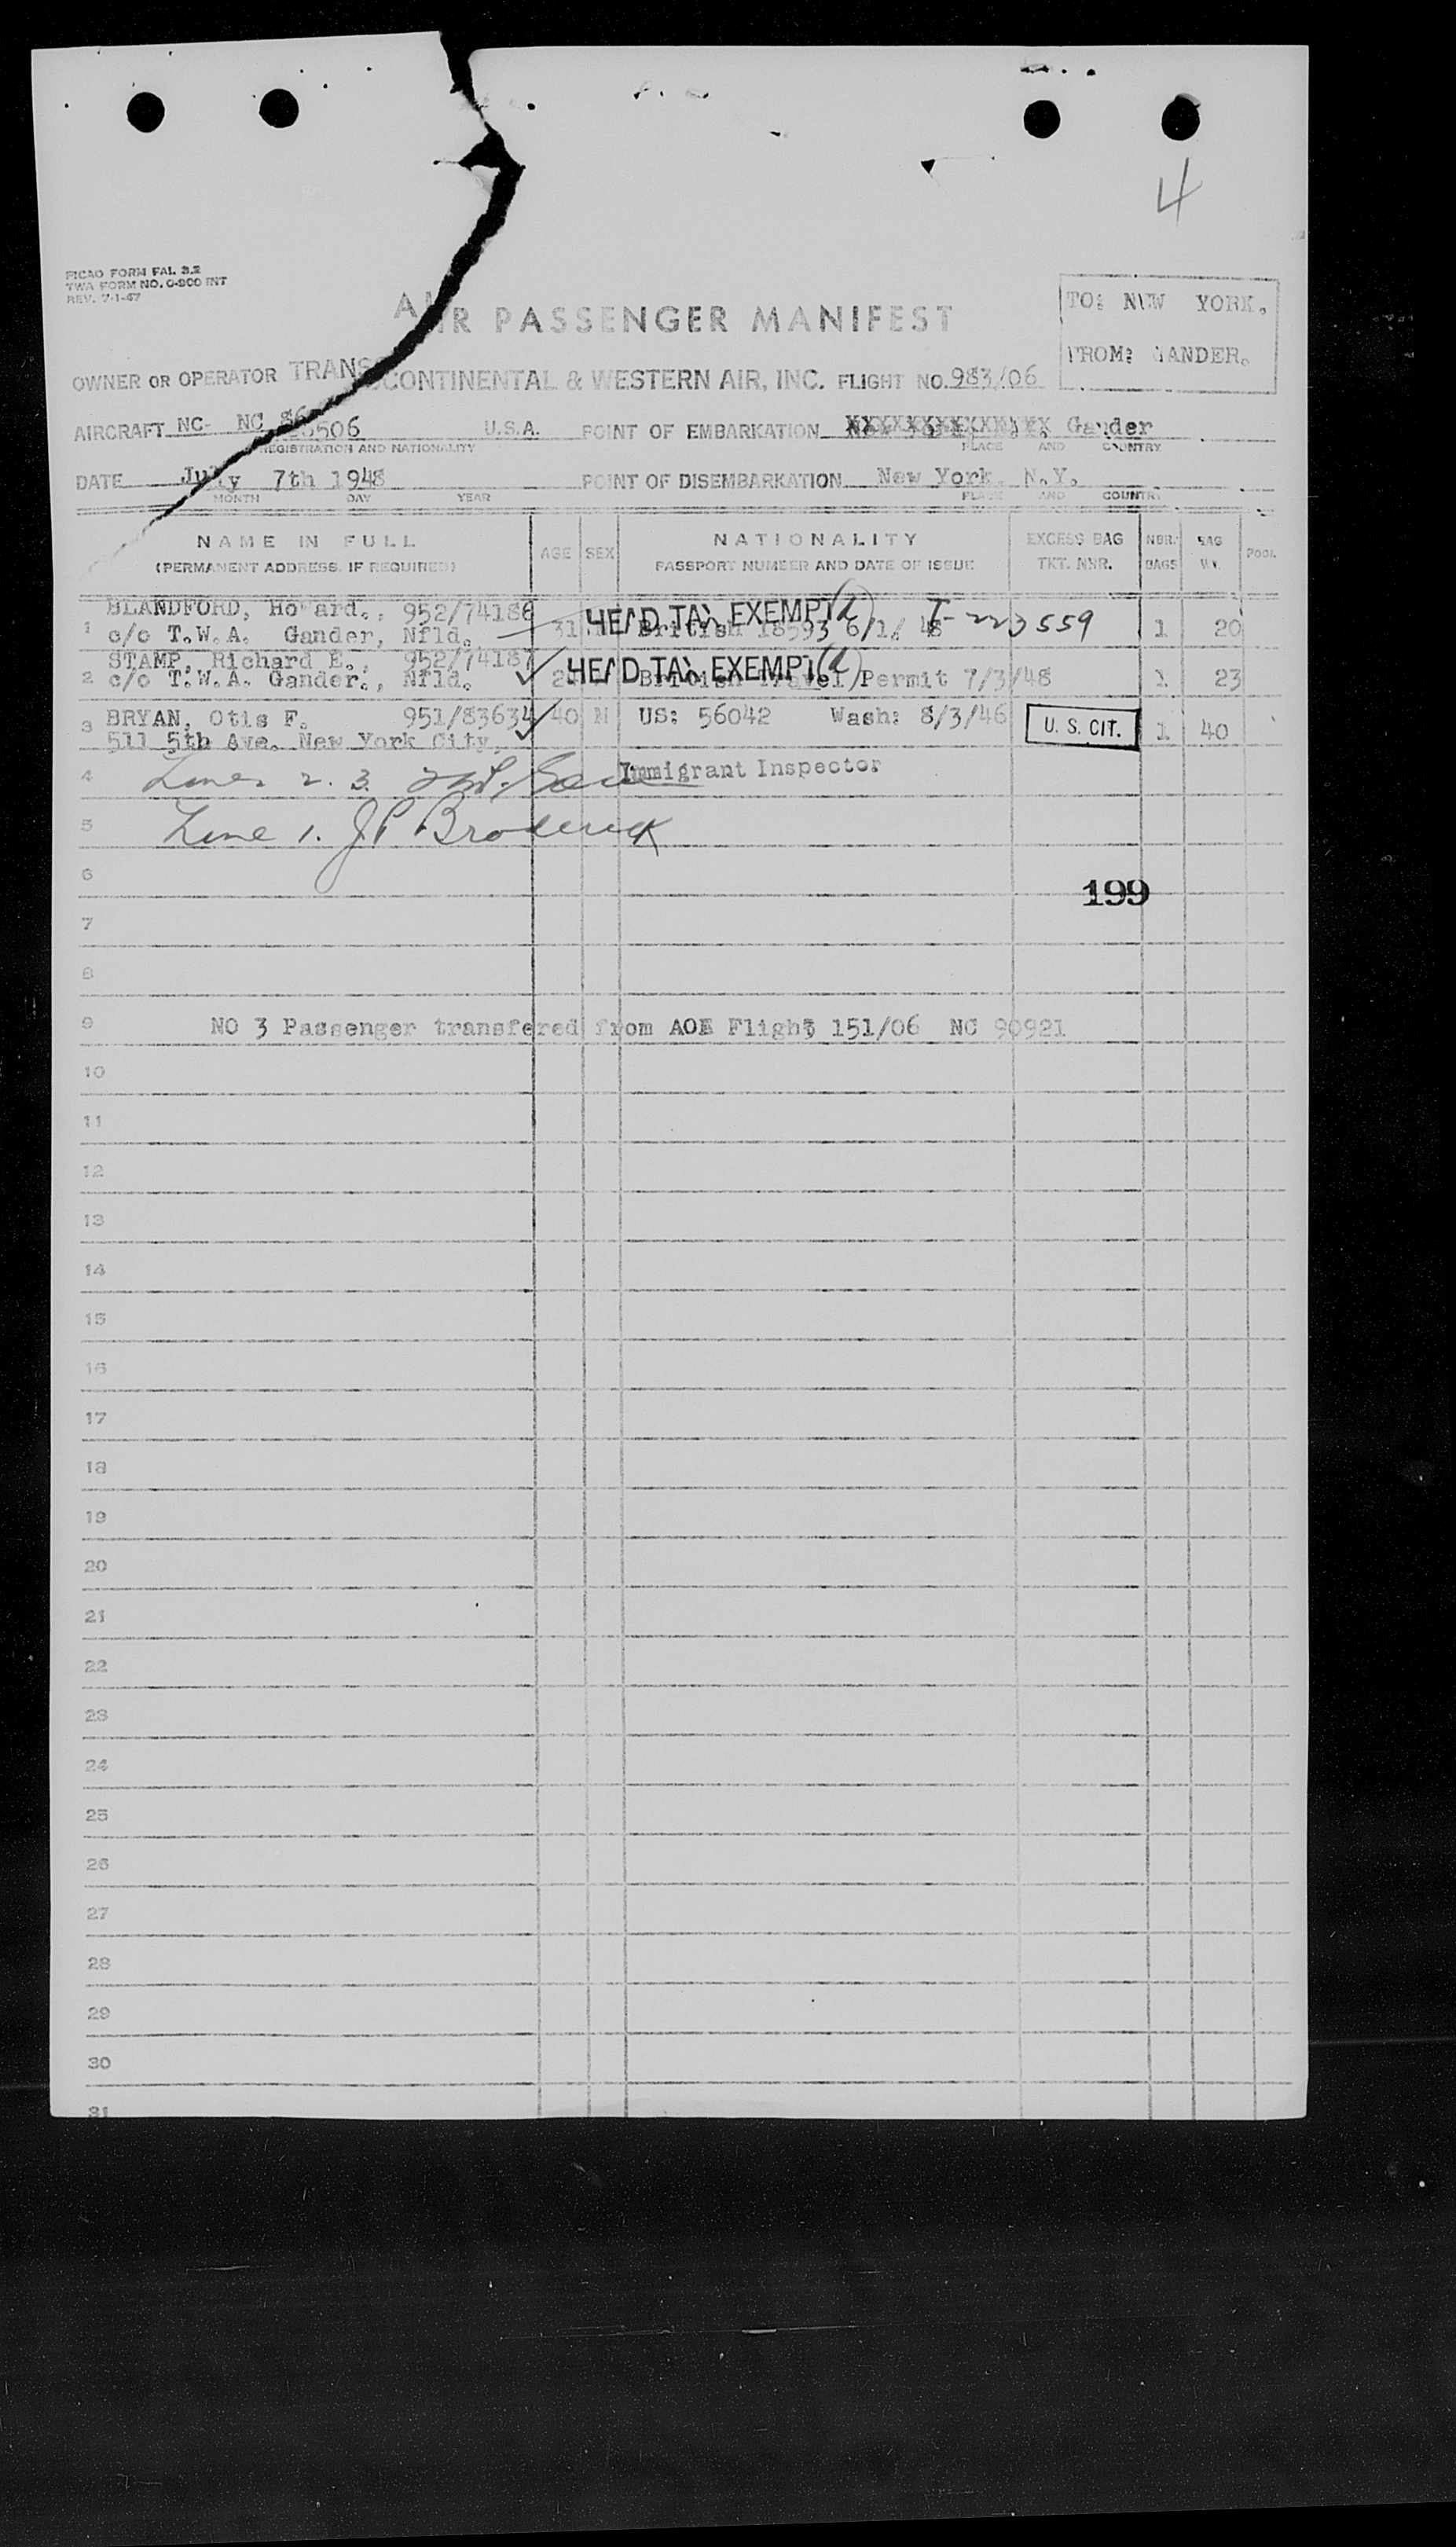 4
PICAO FORM FAL 3.2
TWA FORM NO. O-900 INT
REV. 7-1-47
AIR PASSENGER MANIFEST
TO: NEW YORK.
FROM: GANDER.
OWNER OR OPERATOR TRANSCONTINENTAL & WESTERN AIR, INC. FLIGHT NO. 983/06
AIRCRAFT NC- NC 86506 U.S.A. POINT OF EMBARKATION Gander
REGISTRATION AND NATIONALITY PLACE AND COUNTRY
DATE July 7th 1948 POINT OF DISEMBARKATION New York N.Y.
MONTH DAY YEAR PLACE AND COUNTRY
NAME IN FULL AGE SEX NATIONALITY EXCESS BAG NBR. BAG POOL
(PERMANENT ADDRESS, IF REQUIRED) PASSPORT NUMBER AND DATE OF ISSUE TKT. NBR. BAGS WT.
BLANDFORD, Howard., 952/74186 HEAD TAX EXEMPT
1 c/o T.W.A. Gander, Nfld. 31 British 18593 6/1/48 1 20
STAMP, Richard E., 952/74187 HEAD TAX EXEMPT
2 c/o T.W.A. Gander., Nfld. British Travel Permit 7/3/48 1 23
3 BRYAN, Otis F. 951/83634 40 M US: 56042 Wash: 8/3/46 U. S. CIT. 1 40
511 5th Ave. New York City,
4 Lines 2. 3. Immigrant Inspector
5 Line 1. JP Broderick
6
199
7
8
9 NO 3 Passenger transfered from AOA Flight 151/06 NC 90921
10
11
12
13
14
15
16
17
18
19
20
21
22
23
24
25
26
27
28
29
30
31